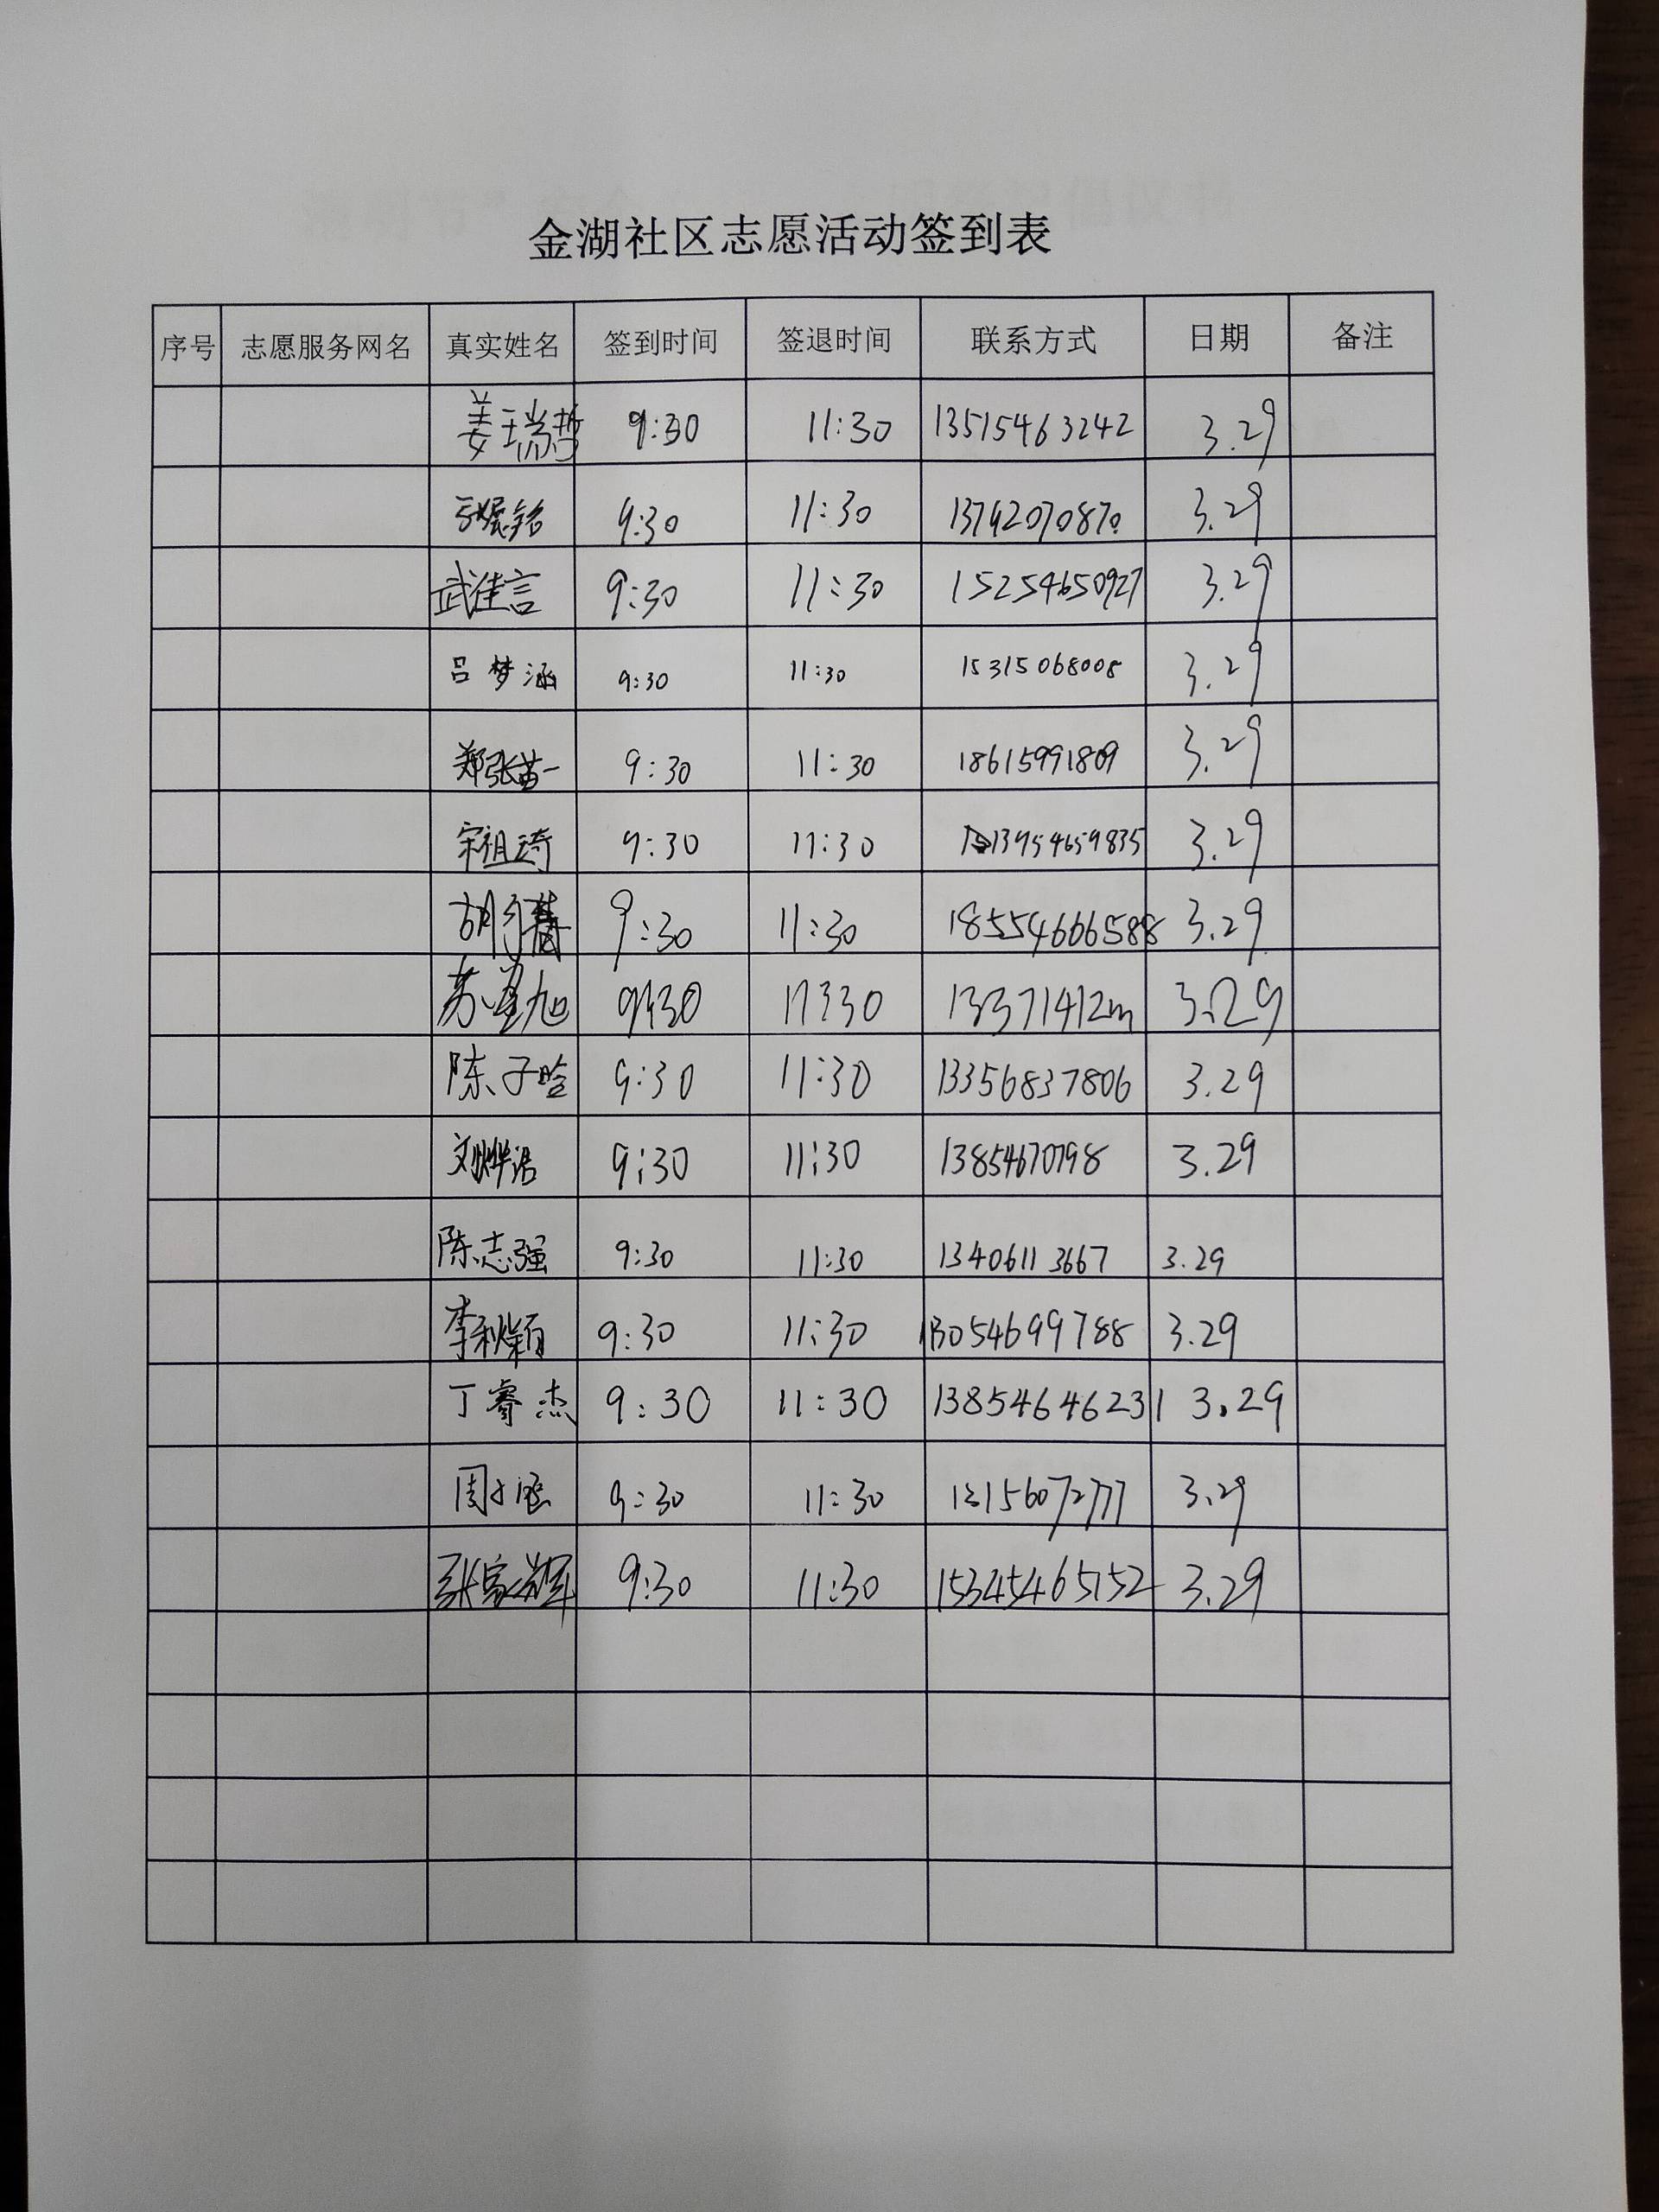 金湖社区志愿活动签到表
序号 志愿服务网名 真实姓名 签到时间 签退时间 联系方式 日期 备注
姜瑞哲 9:30 11:30 13515463242 3.29
9:30 11:30 13792070870 3.29
武佳言 9:30 11:30 15254650927 3.29
吕梦涵 9:30 11:30 15315068008 3.29
郑张苗一 9:30 11:30 18615991809 3.29
宋祖琦 9:30 11:30 13954659835 3.29
9:30 11:30 18554606588 3.29
9:30 11:30 3.29
陈子晗 9:30 11:30 13356837806 3.29
9:30 11:30 13854670798 3.29
陈志强 9:30 11:30 13406113667 3.29
李秋颖 9:30 11:30 13054699788 3.29
丁睿杰 9:30 11:30 13854646231 3.29
9:30 11:30 3.29
9:30 11:30 15345465152 3.29